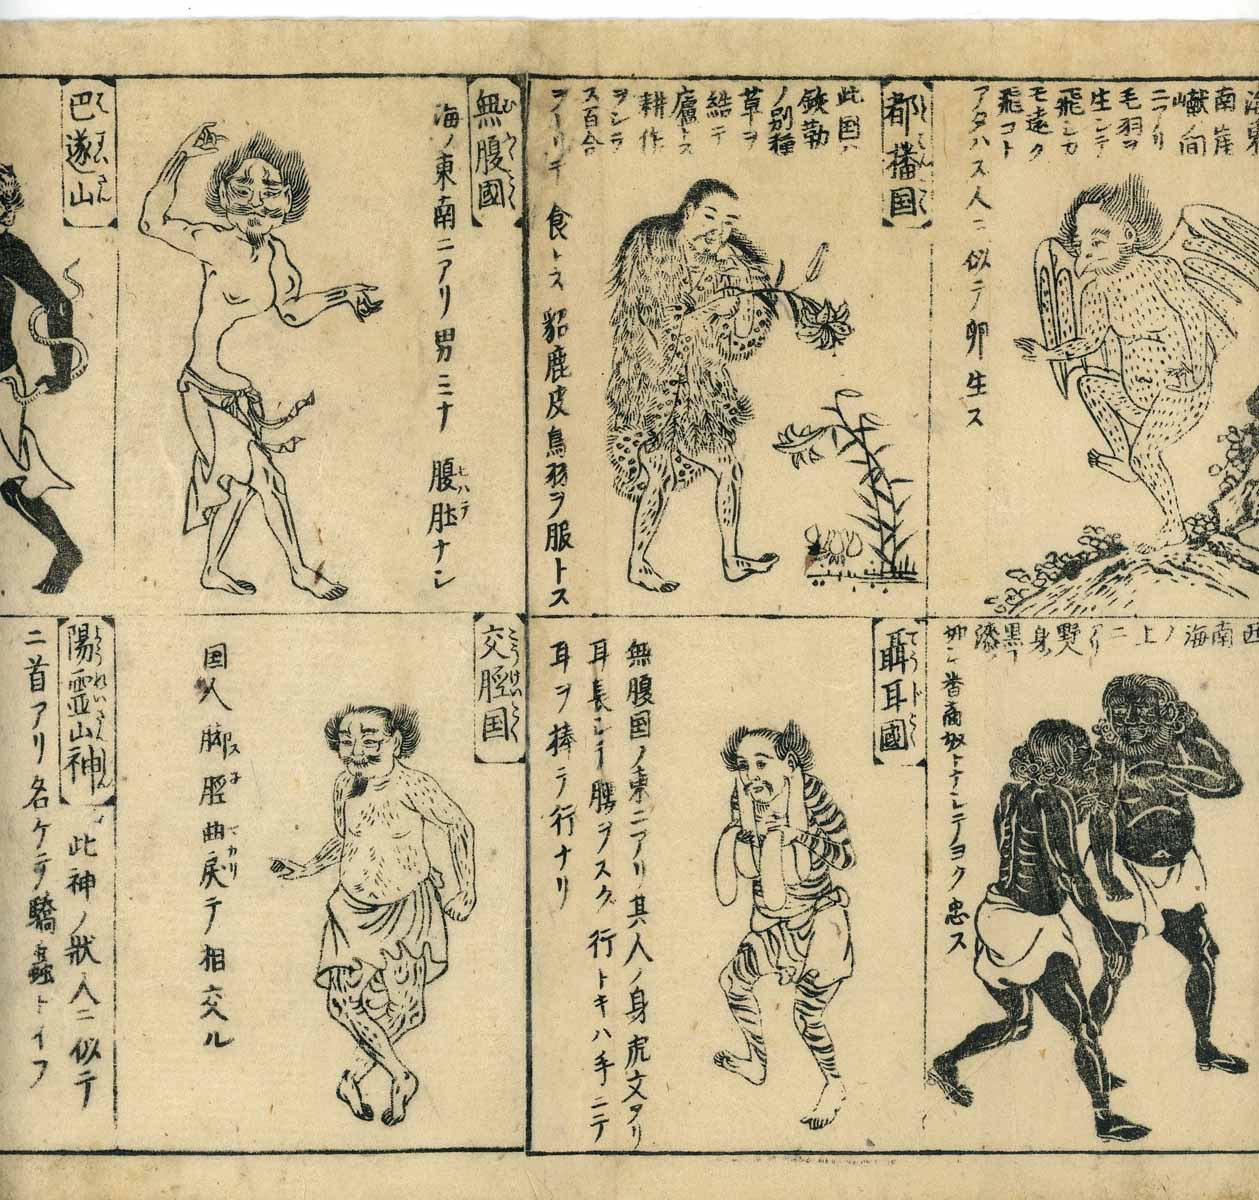 南崖
ニアリ
毛羽ヲ
生シテ
飛シカ
モ遠ク
飛コト
アタハス人ニ似テ卵生ス
都播国
此国ハ
鉄勒
ノ別種
草ヲ
結テ
廬トス
耕作
ヲシラ
ス百合
ヲトリテ食トス貂鹿皮鳥羽ヲ服トス
無腹國
む ふく こく
海ノ東南ニアリ男ミナ腹肚ナシ
巴遂山
西南海ノ上ニアリ野人身黒丁漆
聶耳國
無腹国ノ東ニアリ其人ノ身虎文アリ
耳長シテ腰ヲスク行トキハ手ニテ
耳ヲ棒テ行ナリ
交脛国
かうけいこく
国人脚脛曲戻テ相交ル
陽靈山神
此神ノ状人ニ似テ
二首アリ名ケテ驕蟲トイフ